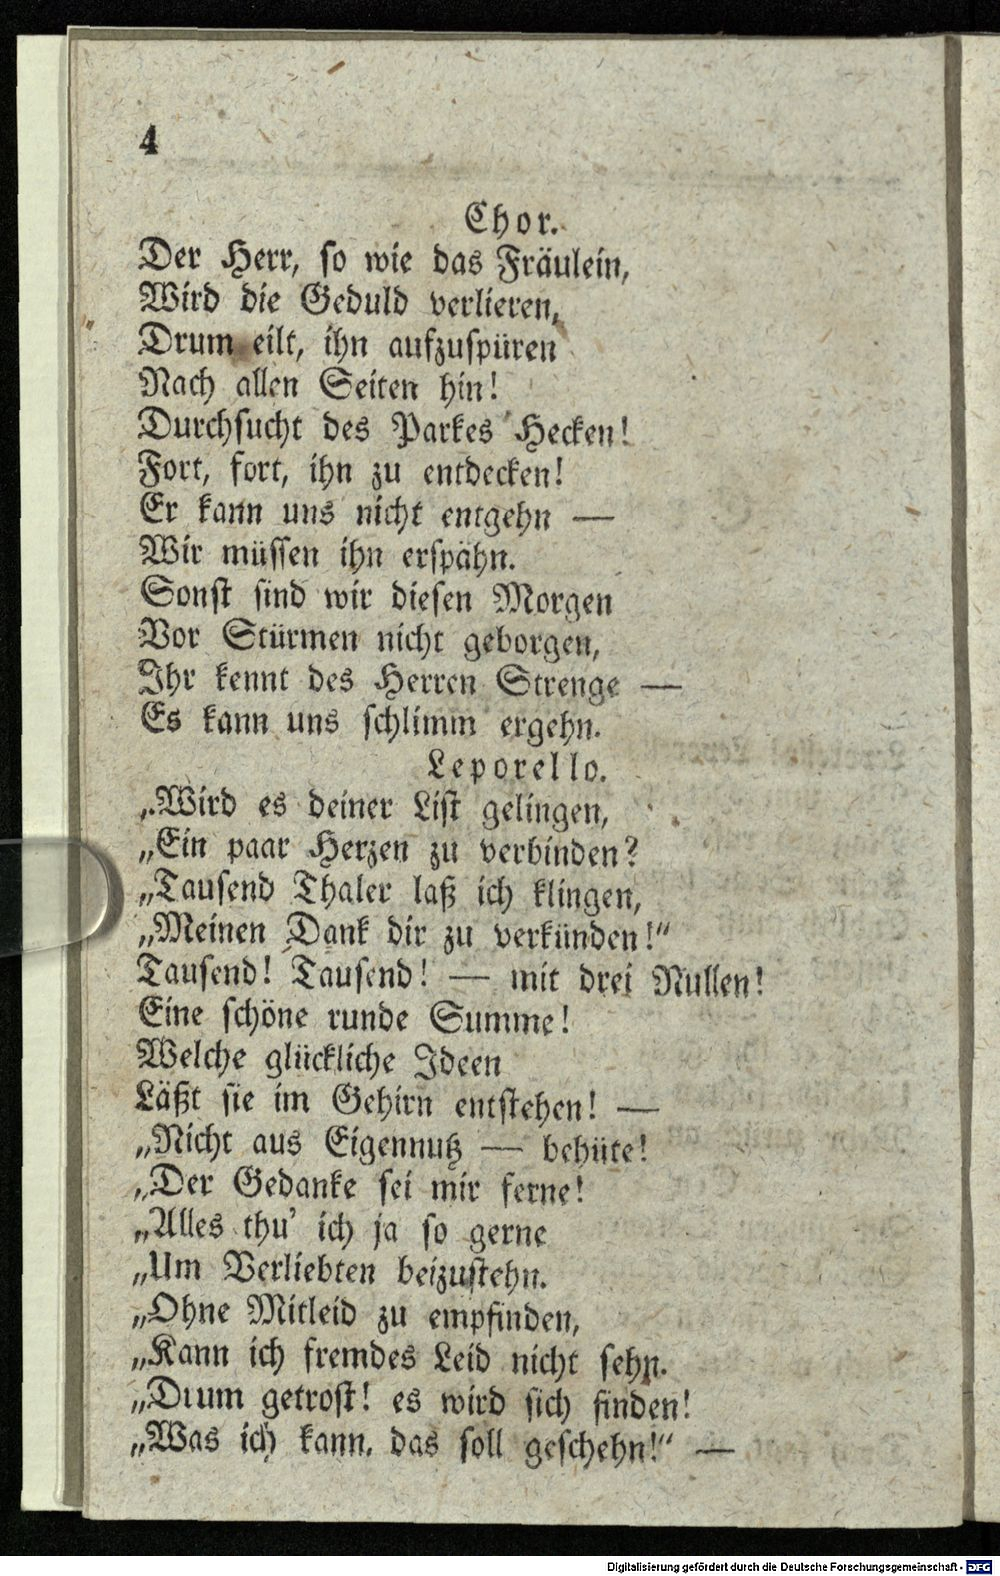 4
Chor.
Der Herr, so wie das Fräulein,
Wird die Geduld verlieren,
Drum eilt, ihn aufzuspüren
Nach allen Seiten hin!
Durchsucht des Parkes Hecken!
Fort, fort, ihn zu entdecken!
Er kann uns nicht entgehn —
Wir müssen ihn erspähn.
Sonst sind wir diesen Morgen
Vor Stürmen nicht geborgen,
Ihr kennt des Herren Strenge —
Es kann uns schlimm ergehn.
Leporello.
„Wird es deiner List gelingen,
„Ein paar Herzen zu verbinden?
„Tausend Thaler laß ich klingen,
„Meinen Dank dir zu verkünden!“
Tausend! Tausend! — mit drei Nullen!
Eine schöne runde Summe!
Welche glückliche Ideen
Läßt sie im Gehirn entstehen! —
„Nicht aus Eigennutz — behüte!
„Der Gedanke sei mir ferne!
„Alles thu’ ich ja so gerne
„Um Verliebten beizustehn.
„Ohne Mitleid zu empfinden,
„Kann ich fremdes Leid nicht sehn.
„Drum getrost! es wird sich finden!
„Was ich kann, das soll geschehn!“ —
Digitalisierung gefördert durch die Deutsche Forschungsgemeinschaft - DFG